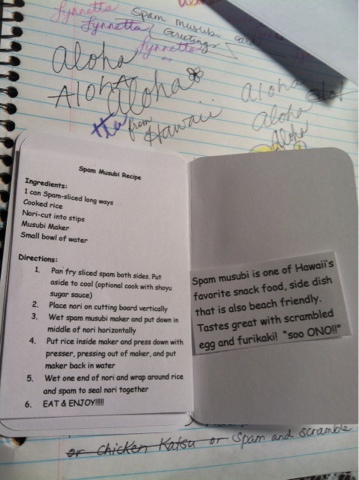 Lynnetta Spam musubi
Lynnetta Greetings
Lynnetta
Aloha
ALOHA Aloha
Aloha
Aloha
Aloha
from
Hawaii
Spam Musubi Recipe
Ingredients:
1 can Spam-sliced long ways
Cooked rice
Nori-cut into stips
Musubi Maker
Small bowl of water
Directions:
1. Pan fry sliced spam both sides. Put
aside to cool (optional cook with shoyu
sugar sauce)
2. Place nori on cutting board vertically
3. Wet spam musubi maker and put down in
middle of nori horizontally
4. Put rice inside maker and press down with
presser, pressing out of maker, and put
maker back in water
5. Wet one end of nori and wrap around rice
and spam to seal nori together
6. EAT & ENJOY!!!!!
Spam musubi is one of Hawaii's
favorite snack food, side dish
that is also beach friendly.
Tastes great with scrambled
egg and furikaki! "soo ONO!!"
or chicken Katsu or Spam and scramble